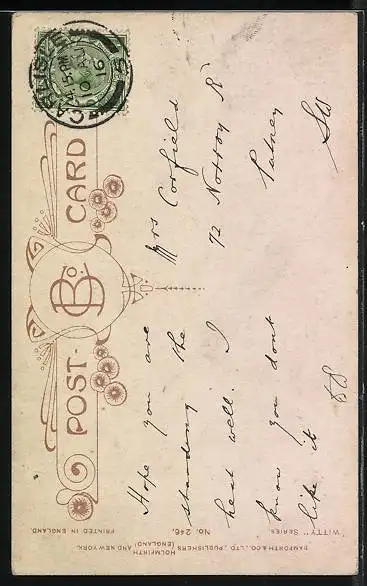 POST CARD
B Co.
CARLISLE
Hope you are
standing the
heat well. I
know you dont
like it
Mrs Corfield
72 Nottroy Rd
Putney
SW
"WITTY" SERIES.
No. 246.
PRINTED IN ENGLAND.
BAMFORTH & CO., LTD., PUBLISHERS
HOLMFIRTH (ENGLAND) AND NEW YORK.